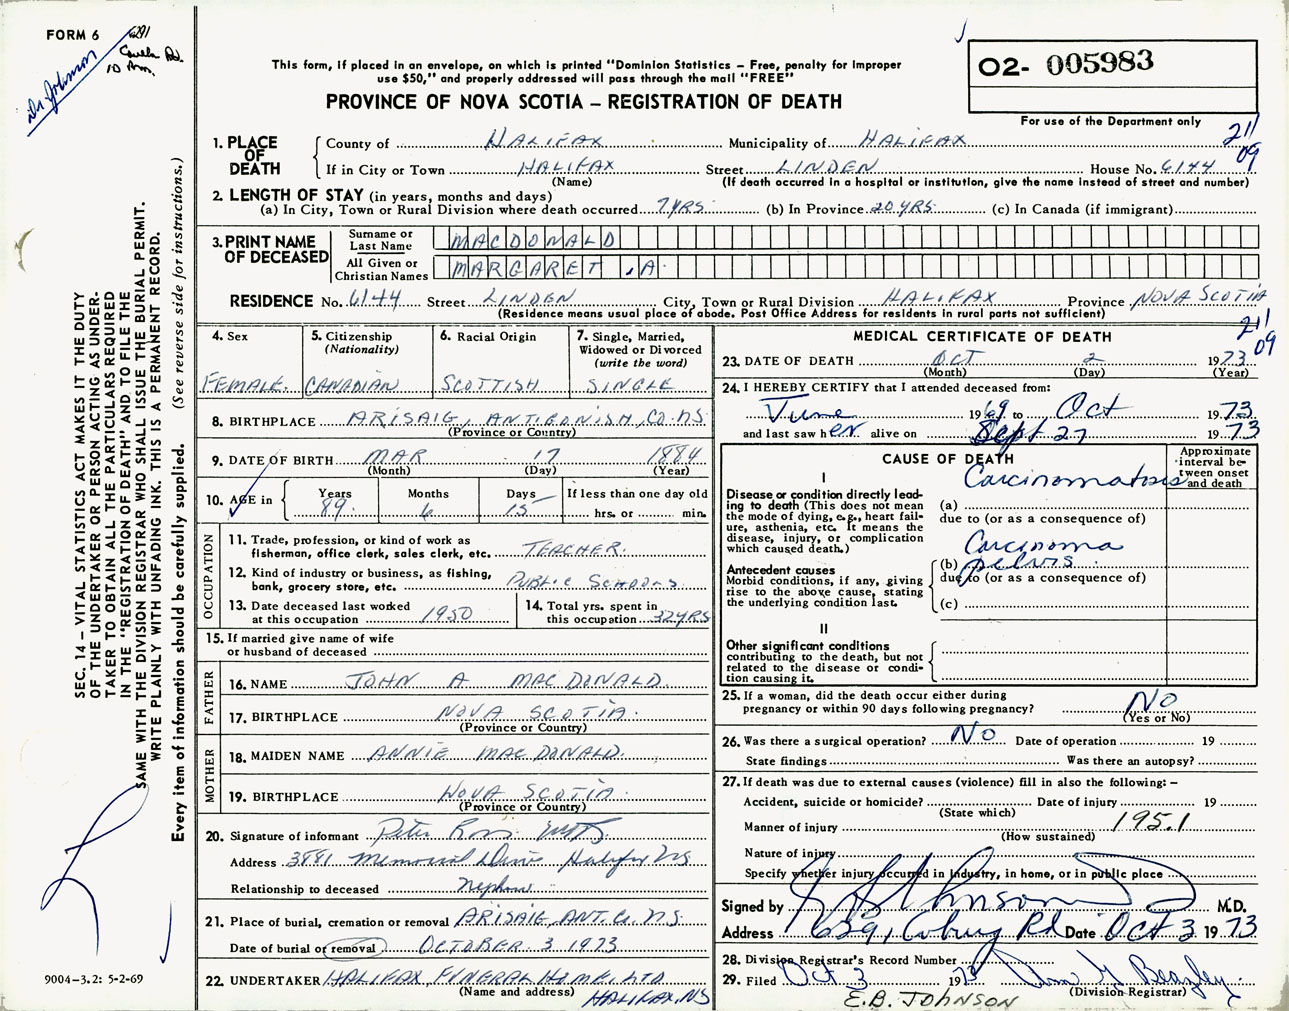 FORM 6
Dr Johnson
6291
Coburg Rd.
10 Am.
This form, if placed in an envelope, on which is printed "Dominion Statistics – Free, penalty for improper
use $50," and properly addressed will pass through the mail "FREE"
PROVINCE OF NOVA SCOTIA – REGISTRATION OF DEATH
O2- 005983
For use of the Department only
211
09
1. PLACE OF DEATH
County of HALIFAX Municipality of HALIFAX
If in City or Town HALIFAX Street LINDEN House No. 6144
(Name) (If death occurred in a hospital or institution, give the name instead of street and number)
2. LENGTH OF STAY (in years, months and days)
(a) In City, Town or Rural Division where death occurred 7 YRS. (b) In Province 20 YRS. (c) In Canada (if immigrant)
3. PRINT NAME OF DECEASED
Surname or Last Name MACDONALD
All Given or Christian Names MARGARET . A.
RESIDENCE No. 6144 Street LINDEN City, Town or Rural Division HALIFAX Province NOVA SCOTIA
(Residence means usual place of abode. Post Office Address for residents in rural parts not sufficient)
4. Sex
FEMALE.
5. Citizenship
(Nationality)
CANADIAN
6. Racial Origin
SCOTTISH
7. Single, Married,
Widowed or Divorced
(write the word)
SINGLE
8. BIRTHPLACE ARISAIG, ANTIGONISH, CO. NS.
(Province or Country)
9. DATE OF BIRTH MAR 17 1884
(Month) (Day) (Year)
10. AGE in
Years 89.
Months 6
Days 15
If less than one day old
hrs. or min.
OCCUPATION
11. Trade, profession, or kind of work as
fisherman, office clerk, sales clerk, etc. TEACHER.
12. Kind of industry or business, as fishing,
bank, grocery store, etc. PUBLIC SCHOOLS
13. Date deceased last worked
at this occupation 1950
14. Total yrs. spent in
this occupation 32 YRS
15. If married give name of wife
or husband of deceased
FATHER
16. NAME JOHN A MACDONALD.
17. BIRTHPLACE NOVA SCOTIA.
(Province or Country)
MOTHER
18. MAIDEN NAME ANNIE MACDONALD.
19. BIRTHPLACE NOVA SCOTIA.
(Province or Country)
20. Signature of informant Peter Ross
Address 3881 Memorial Drive Halifax NS
Relationship to deceased nephew
21. Place of burial, cremation or removal ARISAIG, ANT. Co. N.S.
Date of burial or removal OCTOBER 3 1973
22. UNDERTAKER HALIFAX FUNERAL HOME, LTD.
(Name and address) HALIFAX, NS
MEDICAL CERTIFICATE OF DEATH
211
09
23. DATE OF DEATH OCT 2 1973
(Month) (Day) (Year)
24. I HEREBY CERTIFY that I attended deceased from:
June 1969 to Oct 1973
and last saw her alive on Sept 27 1973
CAUSE OF DEATH
Approximate interval between onset and death
I
Disease or condition directly lead-
ing to death (This does not mean
the mode of dying, e.g., heart fail-
ure, asthenia, etc. It means the
disease, injury, or complication
which caused death.)
Carcinomatosis
(a)
due to (or as a consequence of)
Antecedent causes
Morbid conditions, if any, giving
rise to the above cause, stating
the underlying condition last.
Carcinoma
(b) pelvis.
due to (or as a consequence of)
(c)
II
Other significant conditions
contributing to the death, but not
related to the disease or condi-
tion causing it.
25. If a woman, did the death occur either during
pregnancy or within 90 days following pregnancy? NO
(Yes or No)
26. Was there a surgical operation? NO Date of operation 19
State findings Was there an autopsy?
27. If death was due to external causes (violence) fill in also the following: –
Accident, suicide or homicide? Date of injury 19
(State which)
Manner of injury 195.1
(How sustained)
Nature of injury
Specify whether injury occurred in industry, in home, or in public place
Signed by E B Johnson M.D.
Address 6291 Coburg Rd Date Oct 3 1973
28. Division Registrar's Record Number
29. Filed Oct 3 1973
(Division Registrar)
E.B. JOHNSON
SEC. 14 – VITAL STATISTICS ACT MAKES IT THE DUTY
OF THE UNDERTAKER OR PERSON ACTING AS UNDER-
TAKER TO OBTAIN ALL THE PARTICULARS REQUIRED
IN THE "REGISTRATION OF DEATH" AND TO FILE THE
SAME WITH THE DIVISION REGISTRAR WHO SHALL ISSUE THE BURIAL PERMIT.
WRITE PLAINLY WITH UNFADING INK. THIS IS A PERMANENT RECORD.
Every item of information should be carefully supplied. (See reverse side for instructions.)
9004–3.2: 5-2-69